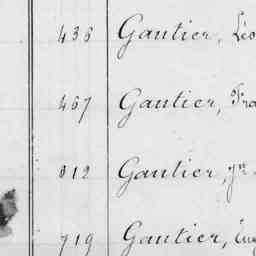 436 Gautier, Léo
467 Gautier, Fra
612 Gautier, Jn
719 Gautier, Eug